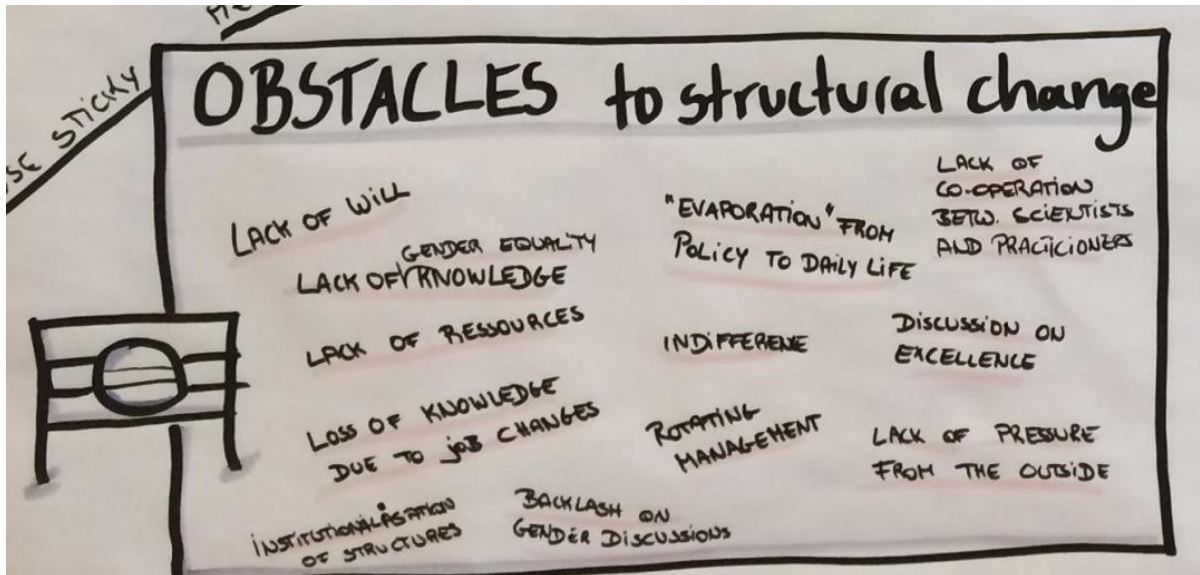 USE STICKY
OBSTACLES to structural change
LACK OF WILL
GENDER EQUALITY
LACK OF KNOWLEDGE
LACK OF RESSOURCES
LOSS OF KNOWLEDGE
DUE TO JOB CHANGES
INSTITUTIONALISATION
OF STRUCTURES
BACKLASH ON
GENDER DISCUSSIONS
"EVAPORATION" FROM
POLICY TO DAILY LIFE
INDIFFERENE
ROTATING
MANAGEMENT
LACK OF
CO-OPERATION
BETW. SCIENTISTS
AND PRACTICIONERS
DISCUSSION ON
EXCELLENCE
LACK OF PRESSURE
FROM THE OUTSIDE